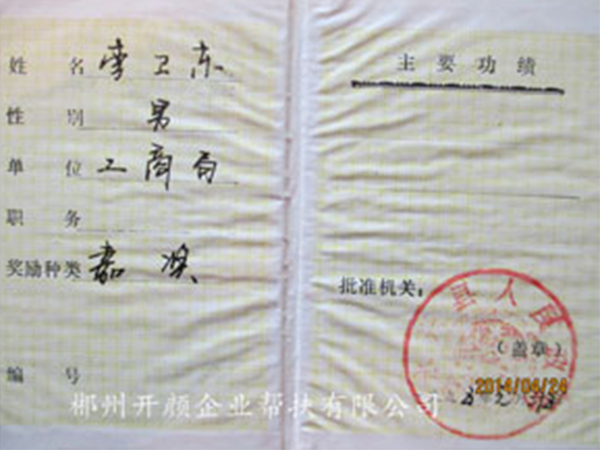 姓 名 李卫东
性 别 男
单 位 工商局
职 务
奖励种类 嘉奖
编 号
主要功绩
批准机关:
县人民
(盖章)
2014/04/24
郴州开颜企业帮扶有限公司